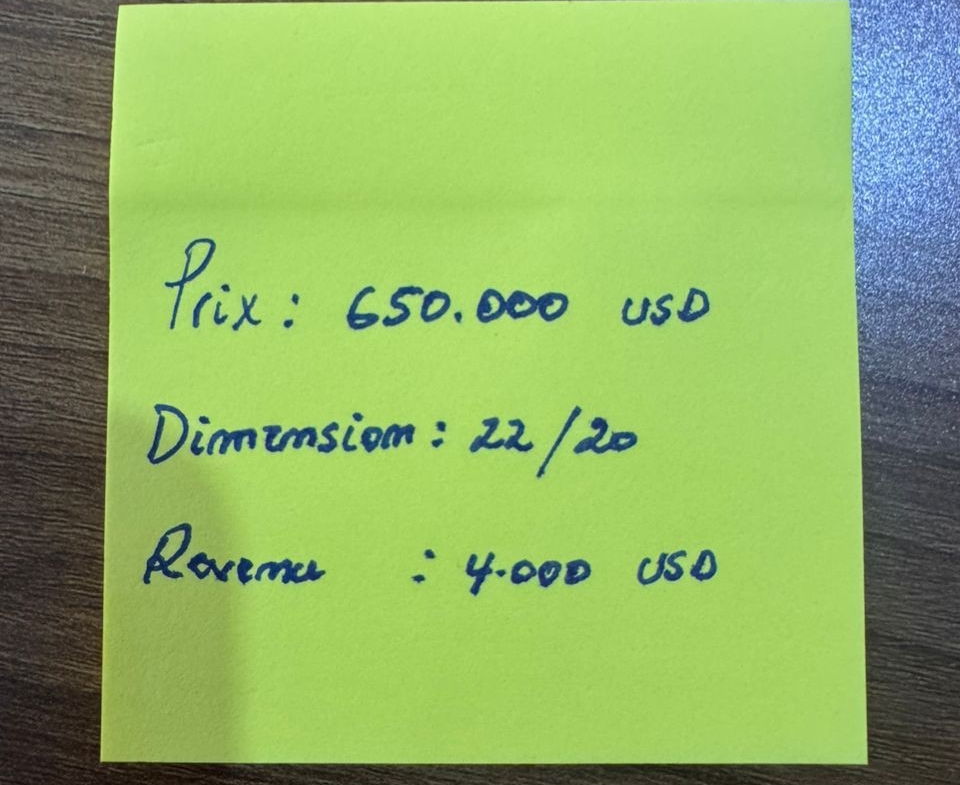 Prix : 650.000 USD
Dimension : 22/20
Revenu : 4.000 USD